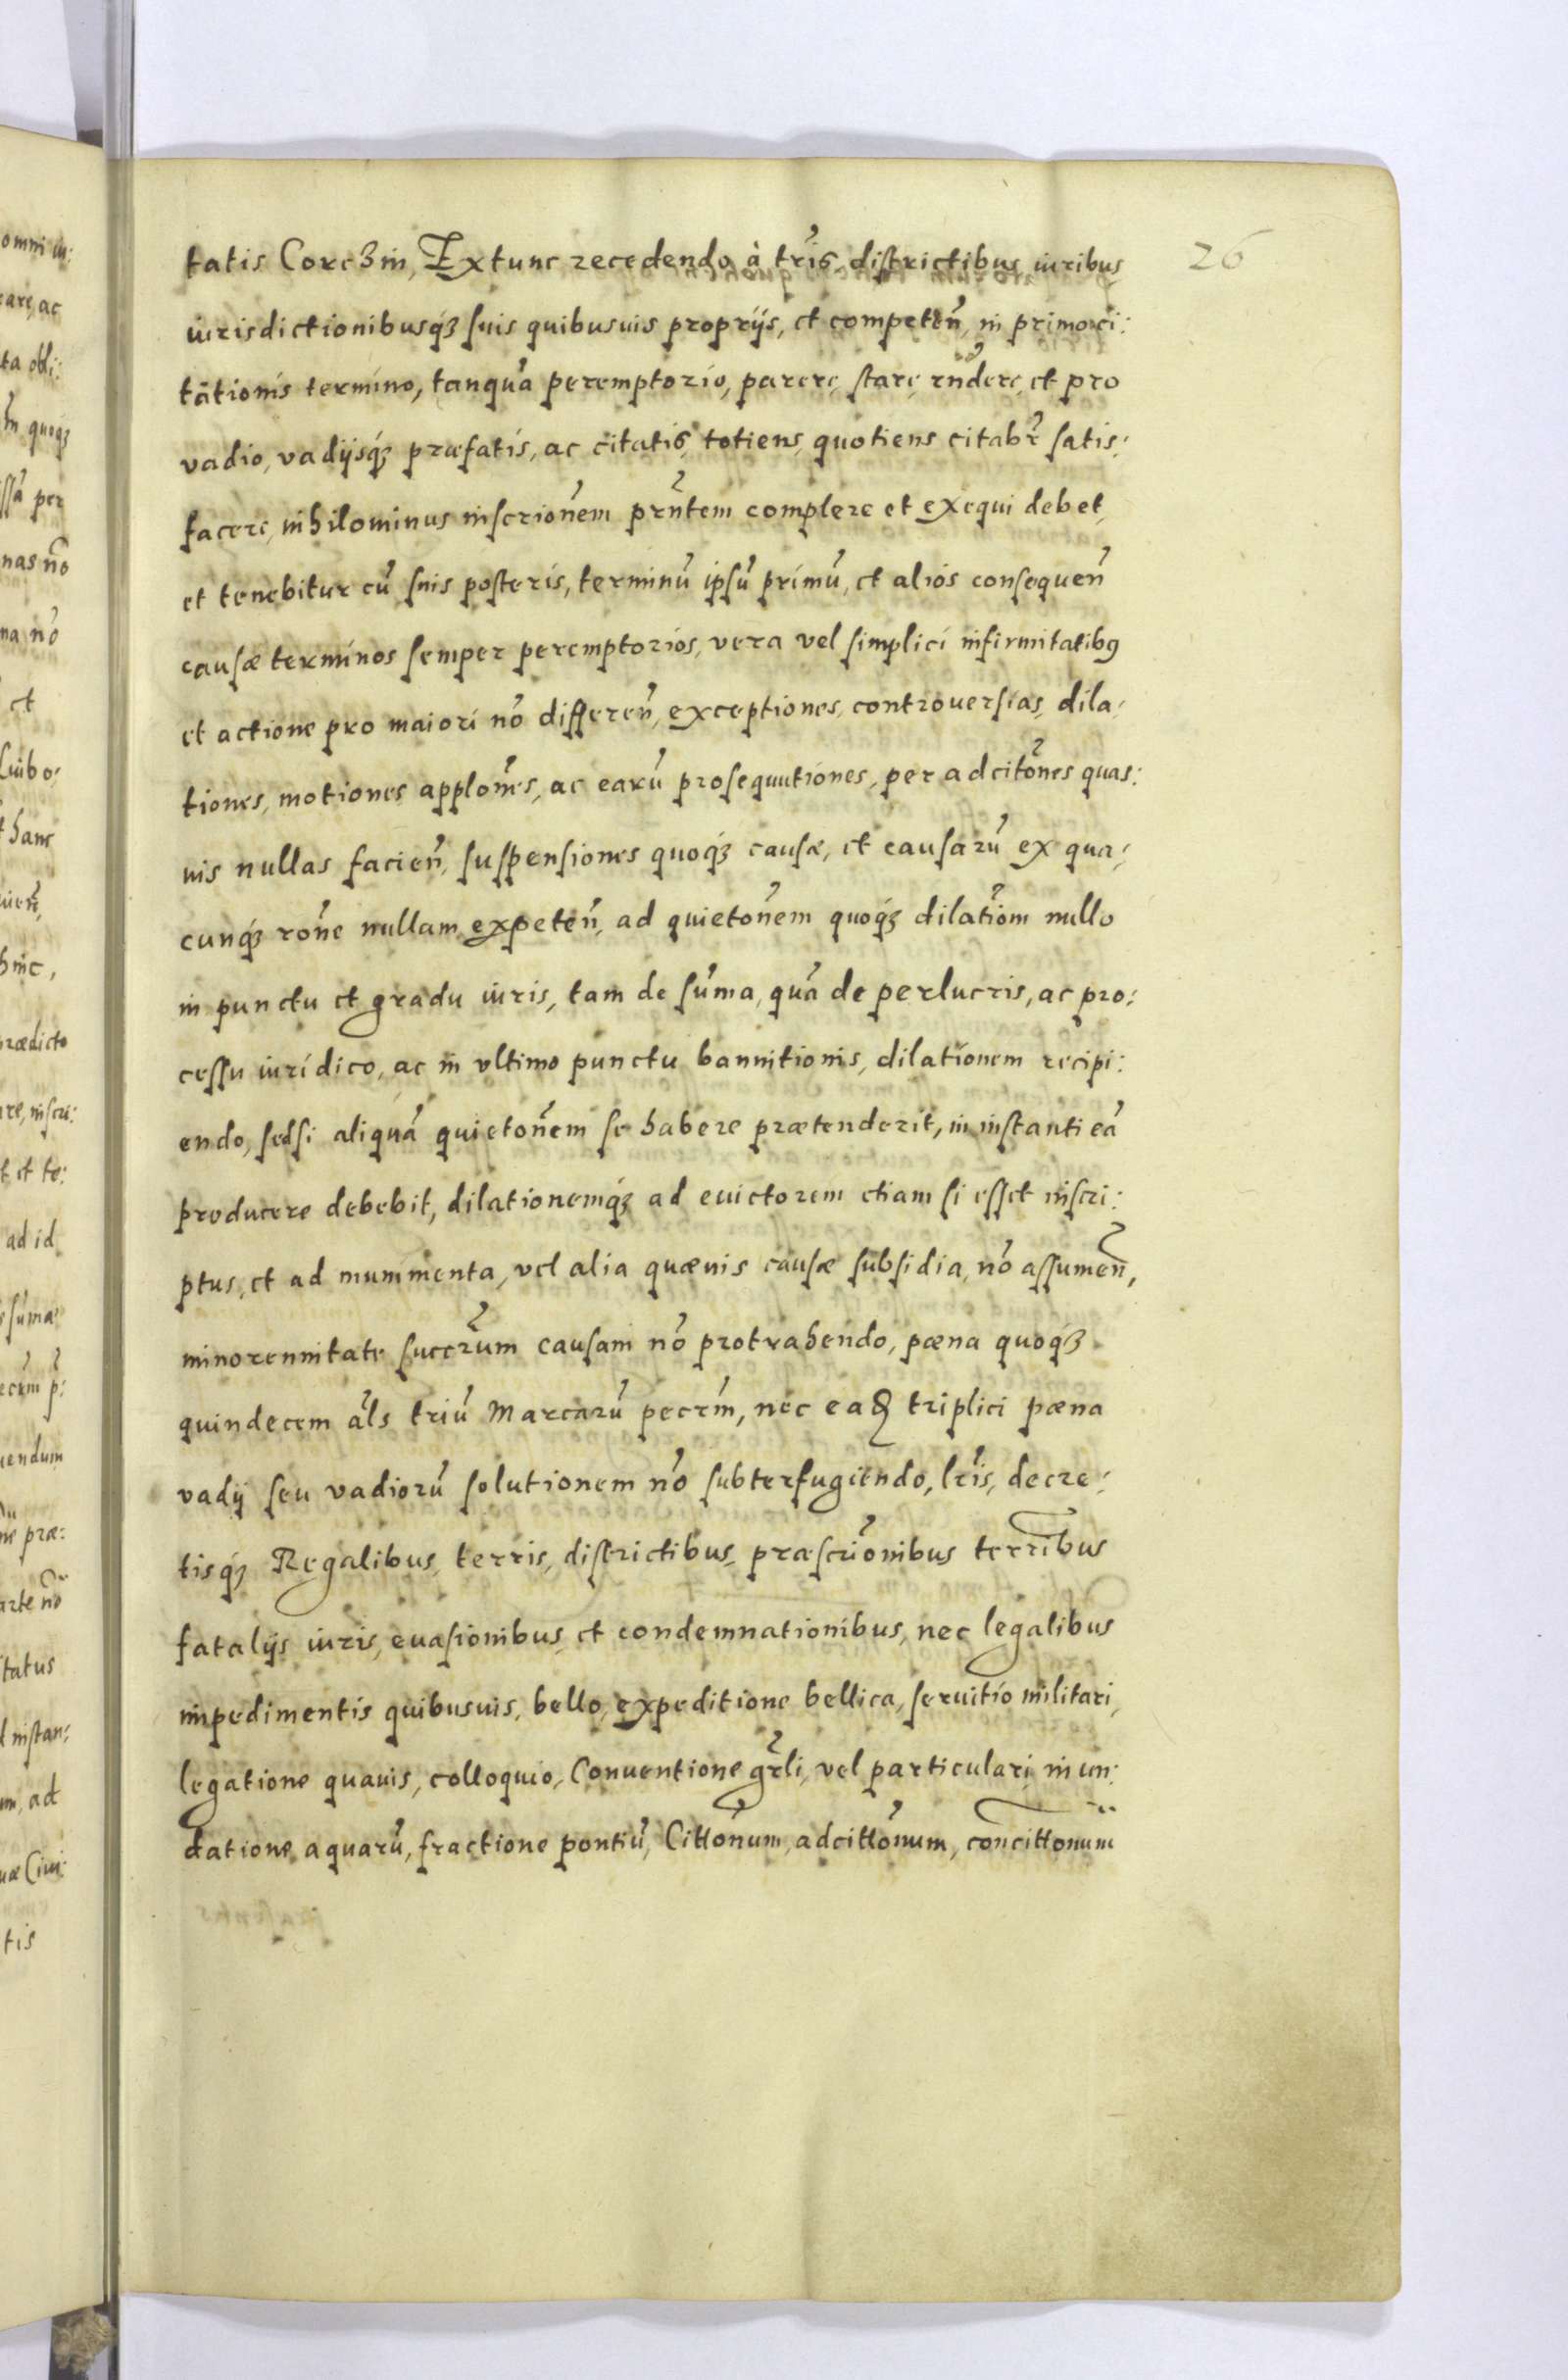 tatis Corczin, Extunc recedendo à tris, districtibus iuribus,
iurisdictionibusq́ꝫ suis quibusuis proprijs, et competeñ, in primo ci:
tationis termino, tanquã peremptorio, parere, stare, rñdere, et pro
vadio, vadijsq́ꝫ præfatis, ac citatis, totiens, quotiens citabr̃ satis:
facere, nihilominus inscrionẽm prñtem complere et exequi debet,
et tenebitur cũ suis posteris, terminũ ipsũ primũ, et alios consequeñ
causæ terminos semper peremptorios, vera vel simplici infirmitatibꝯ
et actione pro maiori nõ differeñ, exceptiones, controuersias, dila:
tiones, motiones applones, ac earũ prosequutiones, per adcitõnes quas:
uis nullas facieñ, suspensiones quoq́ꝫ causæ, et causarũ ex qua:
cunq́ꝫ rõne nullam expeteñ, ad quietoñem quoq́ꝫ dilatiõm nullo
in punctu et gradu iuris, tam de sũma, quã de perlucris, ac pro:
cessu iuridico, ac in vltimo punctu bannitionis, dilationem recipi:
endo, sed si aliquã quietoñem se habere prætenderit, in instanti eã
producere debebit, dilationemq́ꝫ ad euictorem etiam si esset inscri:
ptus, et ad munimenta, vel alia quæuis causæ subsidia, nõ assumeñ,
minorennitate succr̃um causam nõ protrahendo, pæna quoq́ꝫ
quindecem als triũ Marcarũ pecrm̃, nec eaꝝ triplici pæna
vadij seu vadiorũ solutionem nõ subterfugiendo, lris̃, decre:
tisq́ꝫ Regalibus, terris, districtibus, præscriõnibus terribus
fatalijs iuris, euasionibus, et condemnationibus, nec legalibus
impedimentis quibusuis, bello, expeditione bellica, seruitio militari,
legatione quauis, colloquio, Conuentione gr̃li, vel particulari, inun:
datione aquarũ, fractione pontiũ, Cittõnum, adcittõnum, concittonum
26